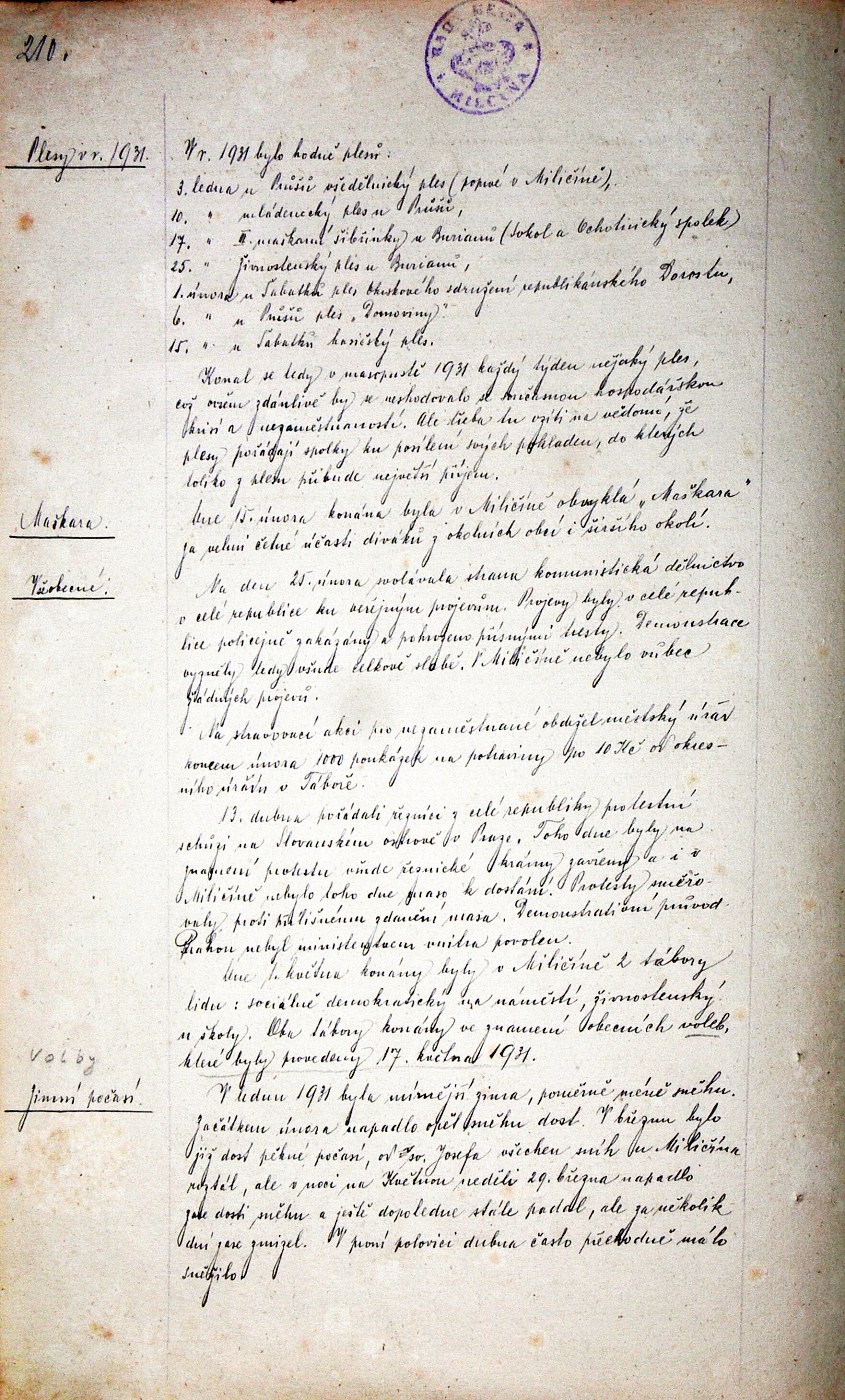 210.
RAD MĚSTA
MILČÍNA
Plesy v r. 1931.
V r. 1931 bylo hodně plesů:
3. ledna u Průšů všedělnický ples (poprvé v Miličíně),
10. " mládenecký ples u Průšů,
17. " II. maškarní šibřinky u Burianů (Sokol a Ochotnický spolek)
25. " Živnostenský ples u Burianů,
1. února u Sabatků ples Okrskového sdružení republikánského Dorostu,
6. " u Průšů ples „Domoviny"
15. " u Sabatků hasičský ples.
Konal se tedy v masopustě 1931 každý týden nějaký ples,
což ovšem zdánlivě by se neshodovalo se současnou hospodářskou
krisí a nezaměstnaností. Ale třeba tu vzíti na vědomí, že
plesy pořádají spolky ku posílení svých pokladen, do kterých
toliko z plesu přibude největší příjem.
Maškara.
Dne 15. února konána byla v Miličíně obvyklá „Maškara"
za velmi četné účasti diváků z okolních obcí i širšího okolí.
Všeobecné:
Na den 25. února svolávala strana komunistická dělnictvo
v celé republice ku veřejným projevům. Projevy byly v celé repub-
lice policejně zakázány a pohroženo přísnými tresty. Demonstrace
vyzněly tedy všude celkově slabě. V Miličíně nebylo vůbec
žádných projevů.
Na stravovací akci pro nezaměstnané obdržel městský úřad
koncem února 1000 poukázek na potraviny po 10 Kč od okres-
ního úřadu v Táboře.
13. dubna pořádali řezníci z celé republiky protestní
schůzi na Slovanském ostrově v Praze. Toho dne byly na
znamení protestu všude řeznické krámy zavřeny a i v
Miličíně nebylo toho dne maso k dostání. Protesty směřo-
valy proti přílišnému zdanění masa. Demonstrativní průvod
Prahou nebyl ministerstvem vnitra povolen.
Dne 1. května konány byly v Miličíně 2 tábory
lidu: sociálně demokratický na náměstí, živnostenský
u školy. Oba tábory konány ve znamení obecních voleb,
Volby
které byly provedeny 17. května 1931.
Zimní počasí.
V lednu 1931 byla mírnější zima, poměrně méně sněhu.
Začátkem února napadlo opět sněhu dost. V březnu bylo
již dost pěkné počasí, od sv. Josefa všechen sníh u Miličína
roztál, ale v noci na Květnou neděli 29. března napadlo
zase dosti sněhu a ještě dopoledne stále padal, ale za několik
dní zase zmizel. V první polovici dubna často přechodně málo
sněžilo.